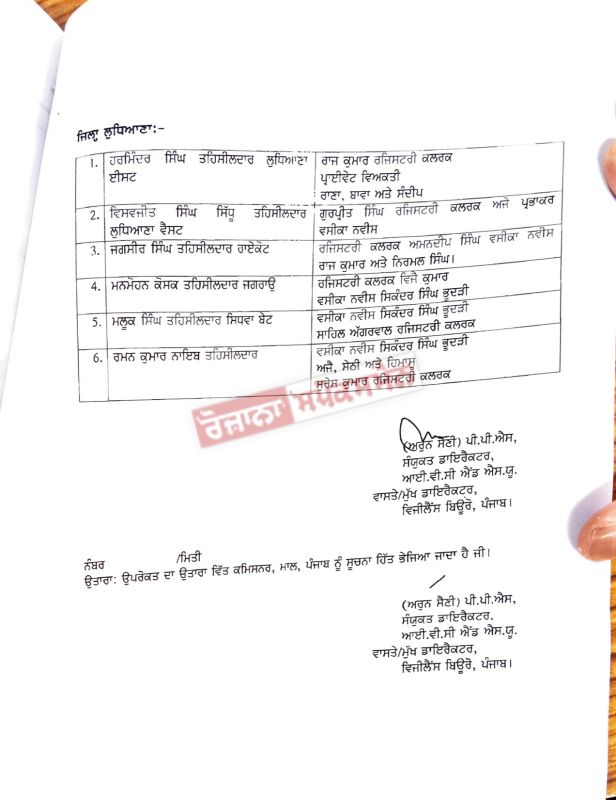 ਜਿਲ੍ਹਾ ਲੁਧਿਆਣਾ:-
1. ਹਰਮਿੰਦਰ ਸਿੰਘ ਤਹਿਸੀਲਦਾਰ ਲੁਧਿਆਣਾ
ਈਸਟ
ਰਾਜ ਕੁਮਾਰ ਰਜਿਸਟਰੀ ਕਲਰਕ
ਪ੍ਰਾਈਵੇਟ ਵਿਅਕਤੀ
ਰਾਣਾ, ਬਾਵਾ ਅਤੇ ਸੰਦੀਪ
2. ਵਿਸਵਜੀਤ ਸਿੰਘ ਸਿੱਧੂ ਤਹਿਸੀਲਦਾਰ
ਲੁਧਿਆਣਾ ਵੈਸਟ
ਗੁਰਪ੍ਰੀਤ ਸਿੰਘ ਰਜਿਸਟਰੀ ਕਲਰਕ ਅਜੇ ਪ੍ਰਭਾਕਰ
ਵਸੀਕਾ ਨਵੀਸ
3. ਜਗਸੀਰ ਸਿੰਘ ਤਹਿਸੀਲਦਾਰ ਰਾਏਕੋਟ
ਰਜਿਸਟਰੀ ਕਲਰਕ ਅਮਨਦੀਪ ਸਿੰਘ ਵਸੀਕਾ ਨਵੀਸ
ਰਾਜ ਕੁਮਾਰ ਅਤੇ ਨਿਰਮਲ ਸਿੰਘ।
4. ਮਨਮੋਹਨ ਕੋਸਕ ਤਹਿਸੀਲਦਾਰ ਜਗਰਾਉ
ਰਜਿਸਟਰੀ ਕਲਰਕ ਵਿਜੈ ਕੁਮਾਰ
ਵਸੀਕਾ ਨਵੀਸ ਸਿਕੰਦਰ ਸਿੰਘ ਭੂਦੜੀ
5. ਮਲੂਕ ਸਿੰਘ ਤਹਿਸੀਲਦਾਰ ਸਿਧਵਾ ਬੇਟ
ਵਸੀਕਾ ਨਵੀਸ ਸਿਕੰਦਰ ਸਿੰਘ ਭੂਦੜੀ
ਸਾਹਿਲ ਅੱਗਰਵਾਲ ਰਜਿਸਟਰੀ ਕਲਰਕ
6. ਰਮਨ ਕੁਮਾਰ ਨਾਇਬ ਤਹਿਸੀਲਦਾਰ
ਵਸੀਕਾ ਨਵੀਸ ਸਿਕੰਦਰ ਸਿੰਘ ਭੂਦੜੀ
ਅਜੈ, ਸੇਠੀ ਅਤੇ ਹਿਮਾਸੂ
ਸੁਰੇਸ ਕੁਮਾਰ ਰਜਿਸਟਰੀ ਕਲਰਕ
ਰੋਜ਼ਾਨਾ
(ਅਰੁਨ ਸੈਣੀ) ਪੀ.ਪੀ.ਐਸ,
ਸੰਯੁਕਤ ਡਾਇਰੈਕਟਰ,
ਆਈ.ਵੀ.ਸੀ ਐਂਡ ਐਸ.ਯੂ.
ਵਾਸਤੇ/ਮੁੱਖ ਡਾਇਰੈਕਟਰ,
ਵਿਜੀਲੈਂਸ ਬਿਊਰੋ, ਪੰਜਾਬ।
ਨੰਬਰ /ਮਿਤੀ
ਉਤਾਰਾ: ਉਪਰੋਕਤ ਦਾ ਉਤਾਰਾ ਵਿੱਤ ਕਮਿਸਨਰ, ਮਾਲ, ਪੰਜਾਬ ਨੂੰ ਸੂਚਨਾ ਹਿੱਤ ਭੇਜਿਆ ਜਾਦਾ ਹੈ ਜੀ।
(ਅਰੁਨ ਸੈਣੀ) ਪੀ.ਪੀ.ਐਸ,
ਸੰਯੁਕਤ ਡਾਇਰੈਕਟਰ,
ਆਈ.ਵੀ.ਸੀ ਐਂਡ ਐਸ.ਯੂ.
ਵਾਸਤੇ/ਮੁੱਖ ਡਾਇਰੈਕਟਰ,
ਵਿਜੀਲੈਂਸ ਬਿਊਰੋ, ਪੰਜਾਬ।